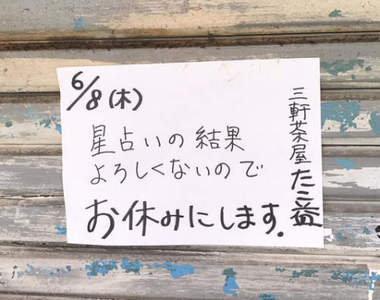 6/8(木)
星占いの結果
よろしくないので
お休みにします.
三軒茶屋 たこ益